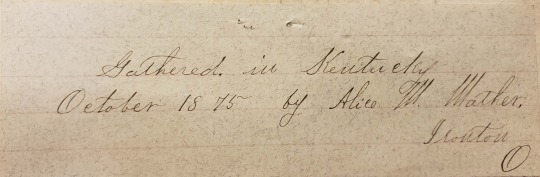 Gathered. in Kentucky
October 1875 by Alice M. Mather.
Ironton
O